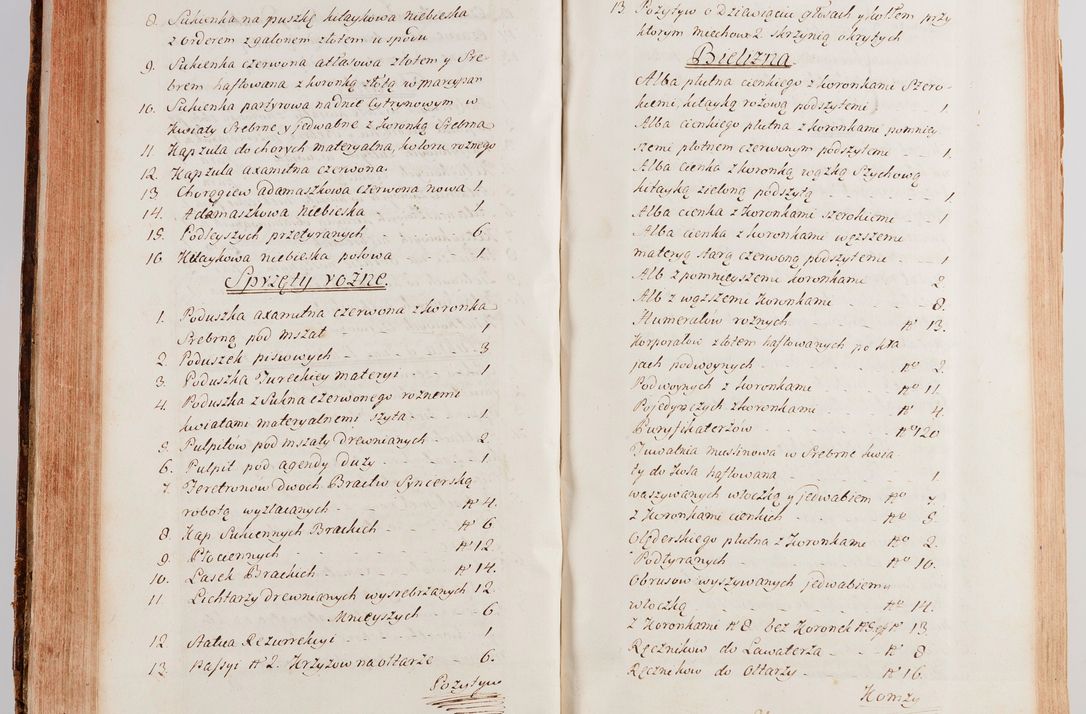 8. Sukienka na puszkę kitaykowa niebieska
z orderem z galonem złotem u spodu
9. Sukienka czerwona atłasowa złotem y Sre-
brem haftowana z koronką złotą w marcypan
10. Sukienka partyrowa na dnie Cytrynowym w
Kwiaty Srebrne y jedwabne z koronką Srebrna
11. Kapzula do chorych materyalna, koloru roznego
12. Kapzula axamitna czerwona.
13. Chorągiew adamaszkowa czerwona nowa 1.
14. Adamaszkowa niebieska 1.
15. Podleyszych przetyranych 6.
16. Kitaykowa niebieska polowa 1.
Sprzęty rożne.
1. Poduszka axamitna czerwona z koronka
Srebrną pod mszał 1
2. Poduszek pisowych 3
3. Poduszka Tureckiey materyi 1
4. Poduszka z Sukna czerwonego rożnemi
kwiatami materyalnemi szyta 1.
5. Pulpitów pod mszały drewnianych 2.
6. Pulpit pod agendy duży 1.
7. Feretronów dwoch Bractw Sycerską
robotą wyzłacanych Nº 4.
8. Kap Sukiennych Brackich Nº 6
9. Płociennych Nº 12.
10. Lasek Brackich Nº 14.
11. Lichtarzy drewnianych wysrebrzanych 12.
Mnieyszych 6
12. Statua Rezurrekcyi 1.
13. Passyi Nº 2. Krzyżow na ołtarze 6.
Pozytyw
13. Pozytyw o dziewiąciu głosach y kotłem przy
ktorym miechow 2 skrzynią okrytych
Bielizna.
Alba płutna cienkiego z koronkami Szero-
kiemi, kitayką rożową podszytemi 1.
Alba cienkiego płutna z koronkami pomniey-
szemi płotnem czerwonym podszytemi 1.
Alba cienka z koronką wązką Szychową
kitayką zieloną podszytą 1.
Alba cienka z koronkami szerokiemi 1
Alba cienka z koronkami węższemi
materyą starą czerwoną podszytemi 1
Alb z pomnieyszemi koronkami 2
Alb z węższemi koronkami 8.
Humerałow rożnych Nº 13.
Korporałow złotem haftowanych po kra
jach podwoynych Nº 2.
Podwoynych z koronkami Nº 11.
Pojedynczych z koronkami Nº 4.
Puryfikaterzow Nº 120
Tuwalnia muslinowa w Srebrne kwia
ty do koła haftowana 1.
waszywanych włoczką y jedwabiem Nº 7.
Z Koronkami cienkich Nº 8.
Olęderskiego płutna z koronkami Nº 2.
Podtyranych Nº 10.
Obrusow wyszywanych jedwabiemy
włoczką Nº 14.
Z Koronkami Nº 8 bez Koronek Nº 5 Nº 13.
Ręcznikow do Lawaterza Nº 8
Ręcznikow do Ołtarzy Nº 16.
Komży